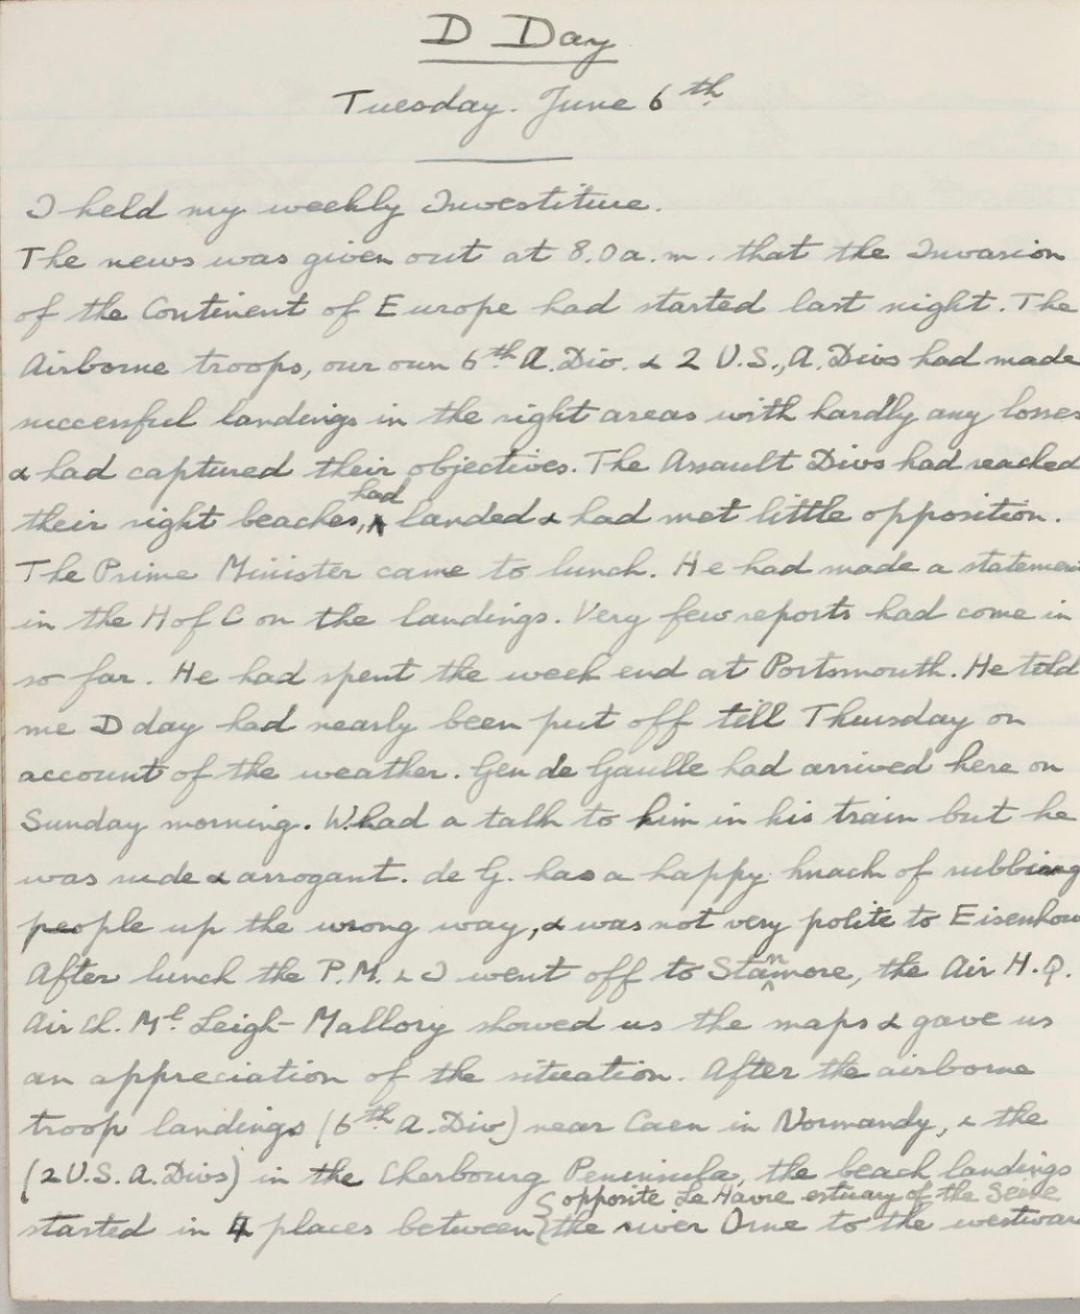 D Day
Tuesday. June 6th
I held my weekly Investiture.
The news was given out at 8.0 a.m. that the Invasion
of the Continent of Europe had started last night. The
Airborne troops, our own 6th A. Div. & 2 U.S., A. Divs had made
successful landings in the right areas with hardly any losses
& had captured their objectives. The Assault Divs had reached
had
their right beaches, landed & had met little opposition.
The Prime Minister came to lunch. He had made a statemen
in the H of C on the landings. Very few reports had come in
so far. He had spent the week end at Portsmouth. He told
me D day had nearly been put off till Thursday on
account of the weather. Gen de Gaulle had arrived here on
Sunday morning. W. had a talk to him in his train but he
was rude & arrogant. de G. has a happy knack of rubbing
people up the wrong way, & was not very polite to Eisenhow
After lunch the P.M. & I went off to Stanmore, the Air H.Q.
Air Ch. Ml. Leigh-Mallory showed us the maps & gave us
an appreciation of the situation. After the airborne
troop landings (6th A. Div) near Caen in Normandy, & the
(2 U.S. A. Divs) in the Cherbourg Peninsula, the beach landings
opposite Le Havre estuary of the Seine
started in 4 places between the river Orne to the westwar